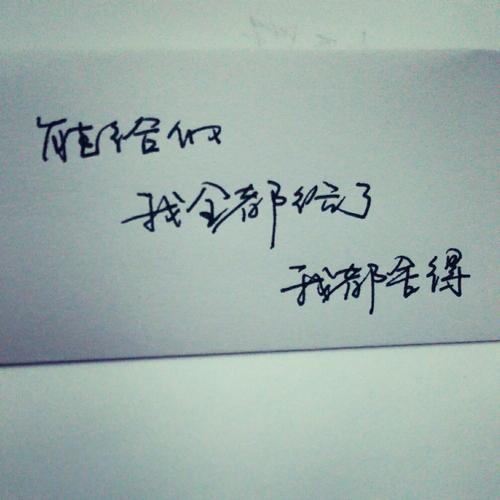 能给你的
我全都给了
我都舍得